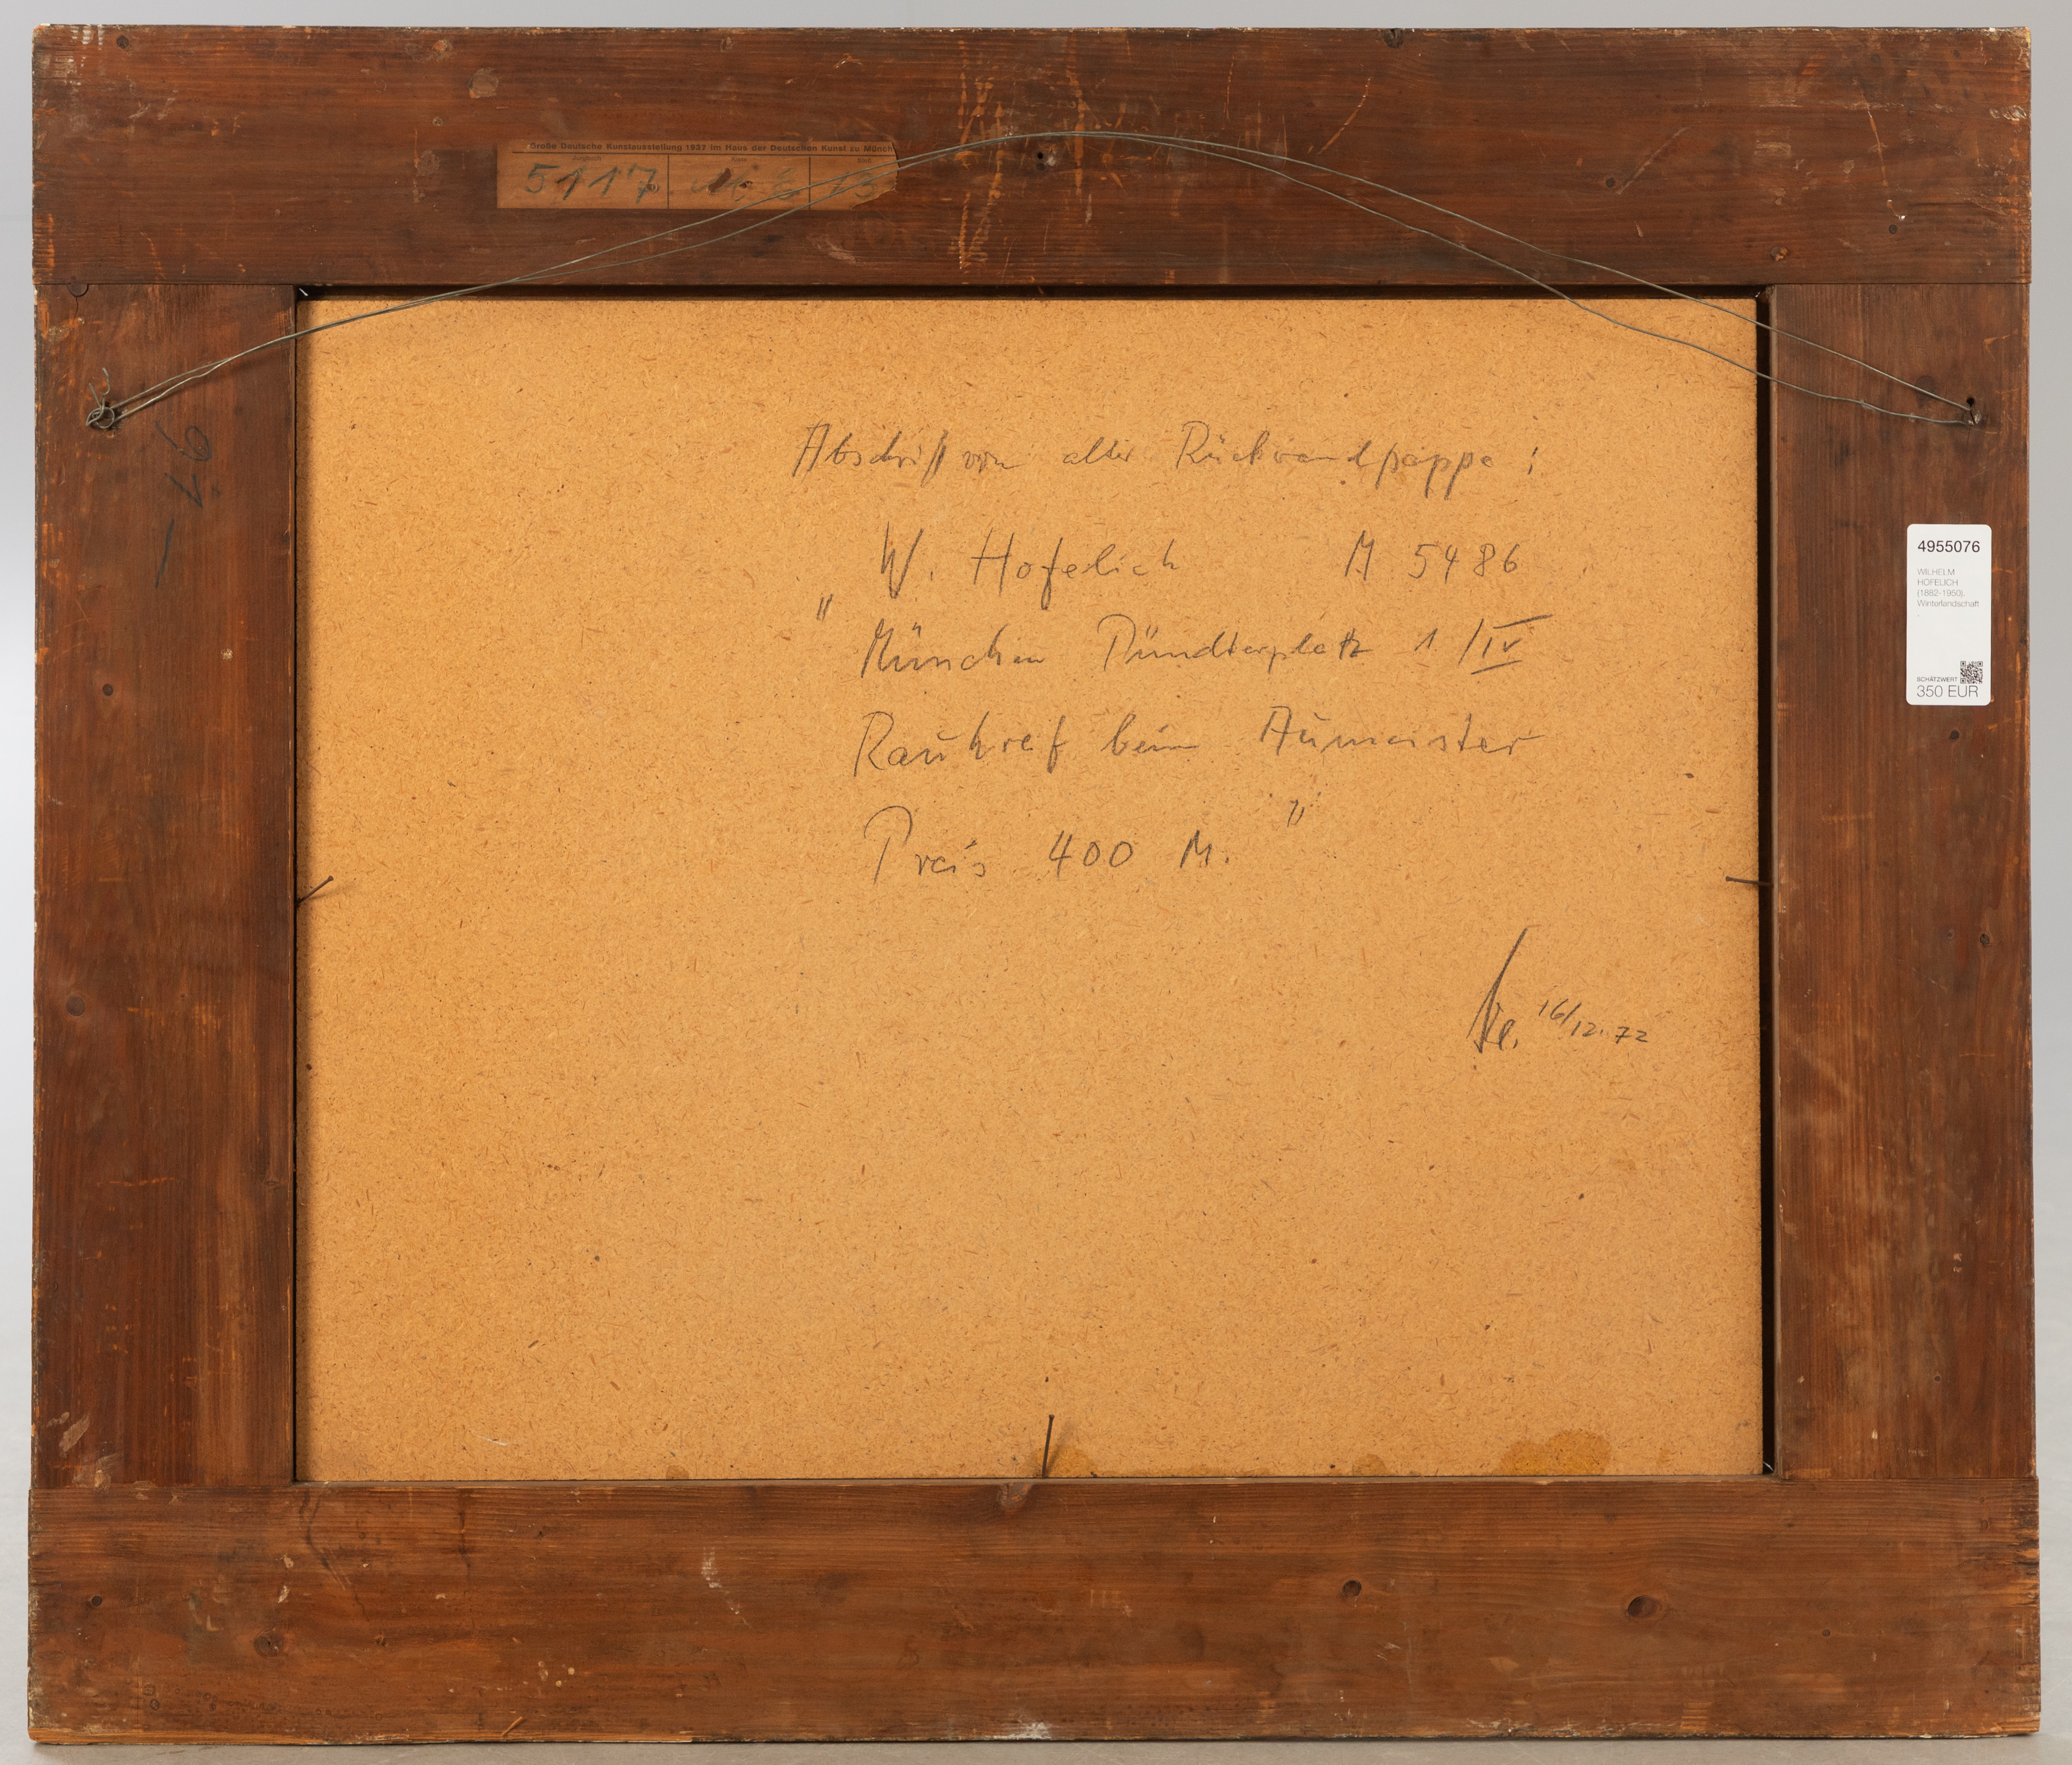 Große Deutsche Kunstausstellung 1937 im Haus der Deutschen Kunst zu Münch
5117
Abschrift von alter Rückwandpappe :
W. Hofelich M 5486
" München Pündterplatz 1 /IV
Rauhreif beim Aumeister
Preis 400 M. "
16/12.72
4955076
WILHELM
HOFELICH
(1882-1950),
Winterlandschaft
SCHÄTZWERT
350 EUR